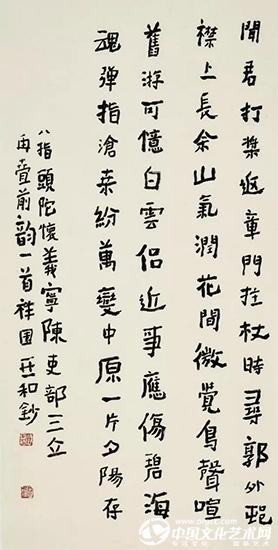 聞君打槳返章門拄杖時尋郭外邨
襟上長余山氣潤花間微覺鳥聲喧
舊游可憶白雲侶近事應傷碧海
魂彈指滄桒紛萬變中原一片夕陽存
八指頭陀懷義寧陳吏部三立
再疊前韵一首祥園 和鈔
中国文化艺术网